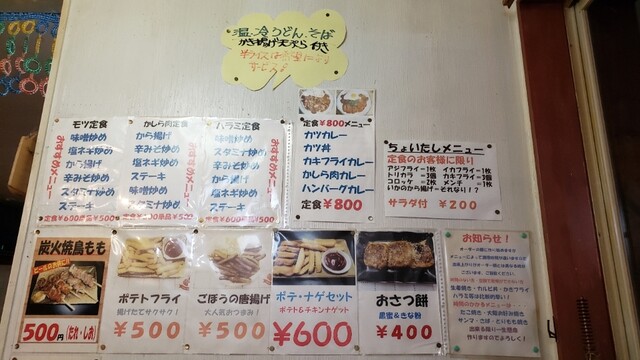 温、冷うどん、そば
かき揚げ天ぷら付き
モツ定食
味噌炒め
塩ネギ炒め
から揚げ
辛みそ炒め
スタミナ炒め
ステーキ
おすすめメニュー
定食¥600単品¥500
かしら肉定食
から揚げ
辛みそ炒め
塩ネギ炒め
ステーキ
味噌炒め
スタミナ炒め
おすすめメニュー
定食¥600単品¥500
ハラミ定食
味噌炒め
スタミナ炒め
辛みそ炒め
塩ネギ炒め
から揚げ
ステーキ
おすすめメニュー
定食¥600単品¥500
定食¥800メニュー
カツカレー
カツ丼
カキフライカレー
かしら肉カレー
ハンバーグカレー
定食¥800
ちょいたしメニュー
定食のお客様に限り
アジフライ=1枚 イカフライ=1枚
トリカラ=3個 カキフライ=3個
コロッケ=2枚 メンチ=1枚
いかのから揚げ=それなり!?
サラダ付 ¥200
炭火焼鳥もも
500円(たれ・しお)
ポテトフライ
揚げたてサクサク!
¥500
ごぼうの唐揚げ
大人気おつまみ!
¥500
ポテ・ナゲセット
ポテト&チキンナゲット
¥600
おさつ餅
黒蜜&きな粉
¥400
お知らせ!
生産焼き・カルビ丼・かきフライ